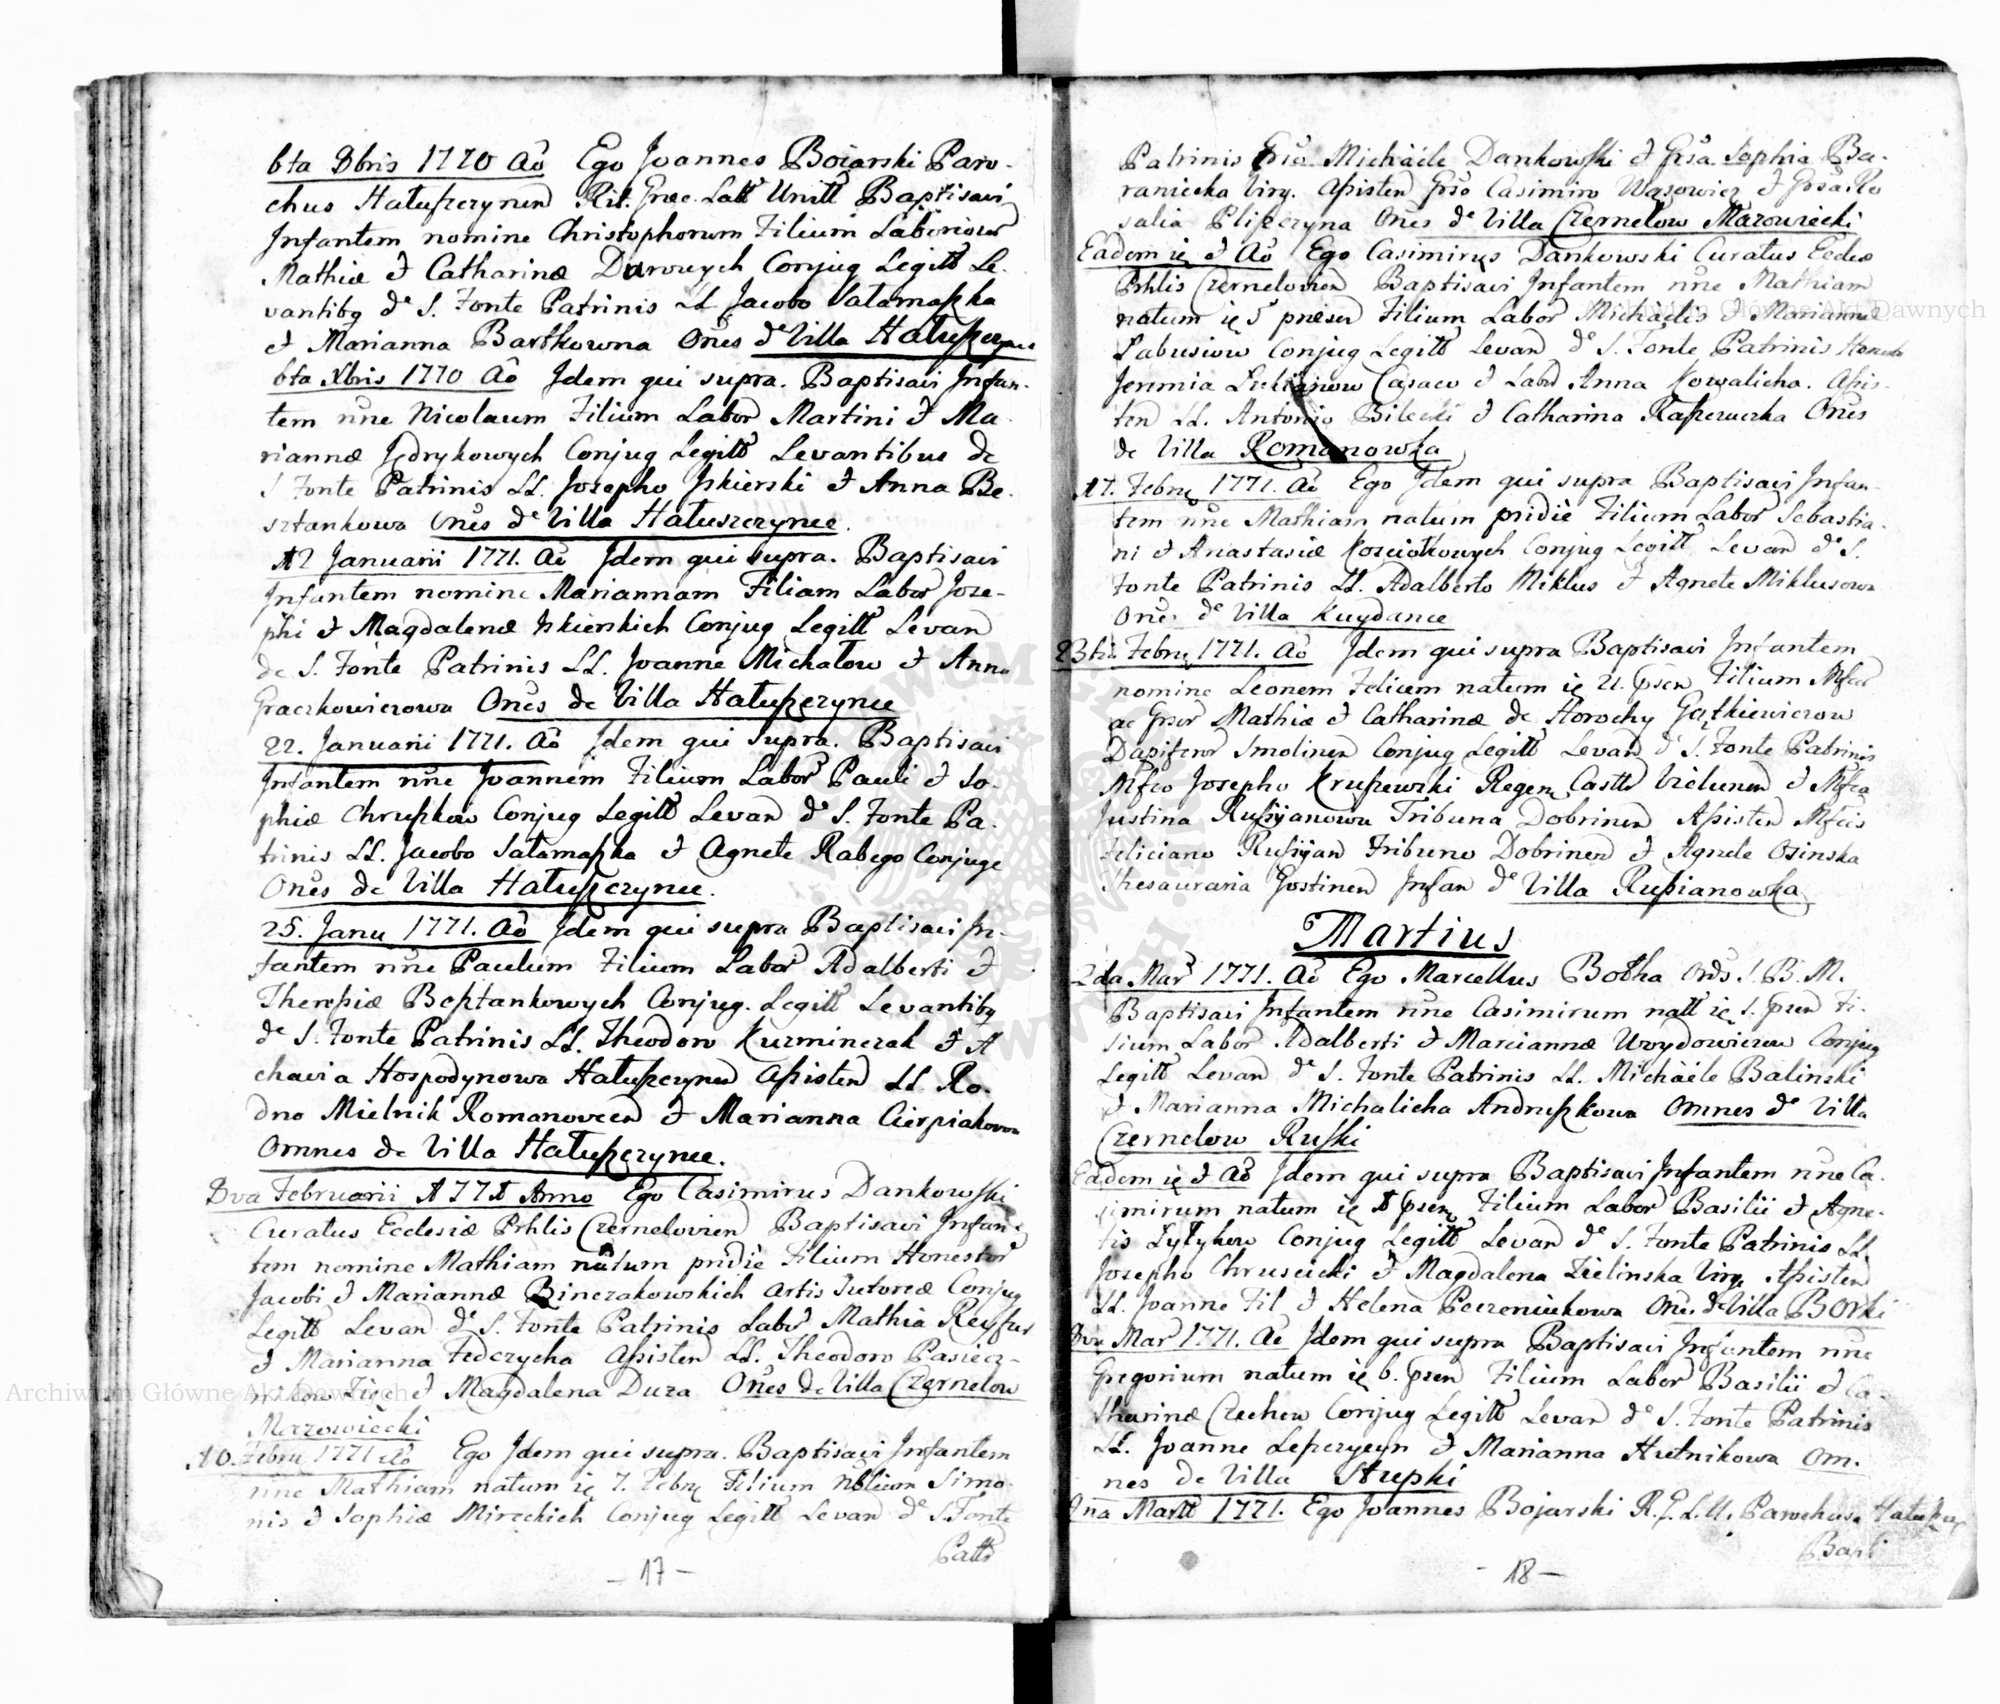 6ta 8bris 1770 Aô Ego Joannes Boiarski Paro-
chus Hałuszczynen Rit. Græc. Latt Unitt Baptisavi
Infantem nomine Christophorum Filium Laborioror
Mathiæ & Catharinæ Conjug Legitt Le-
vantibg de S. Fonte Patrinis LL Jacobo Sałamaszka
& Marianna Bartkowna Ones de Villa Hałuszczynce
6ta Xbris 1770 Aô Idem qui supra. Baptisavi Infan-
tem nne Nicolaum Filium Labor Martini & Ma-
riannæ Jędrykowych Conjug Legitt Levantibus de
S Fonte Patrinis LL. Josepho Iskierski & Anna Be-
sztankowa Ones de Villa Hałuszczynce.
12 Januarii 1771. Aô Idem qui supra. Baptisavi
Infantem nomine Mariannam Filiam Labor Jose-
phi & Magdalenæ Iskierskich Conjug Legitt Levan
de S. Fonte Patrinis LL. Joanne Michałow & Anna
Graczkowiczowa Ones de Villa Hałuszczynce
22. Januarii 1771. Aô Idem qui supra. Baptisavi
Infantem nne Joannem Filium Labor Pauli & So-
phiæ Chruszkow Conjug Legitt Levan de S. Fonte Pa-
trinis LL. Jacobo Sałamaszka & Agnete Rabego Conjuge
Ones de Villa Hałuszczynce.
25. Janu 1771. Aô Idem qui supra Baptisavi In-
fantem nne Paulum Filium Labor Adalberti &
Theresiæ Besztankowych Conjug. Legitt Levantibg
de S. Fonte Patrinis LL. Theodoro Kuzminczak & A
chavia Hospodynowa Hałuszczynen Assisten LL. Ro-
dno Mielnik Romanovcen & Marianna Cierpiakowa
Omnes de Villa Hałuszczynce.
8va Februarii 1771 Anno Ego Casimirus Dankowski
Curatus Ecclesiæ Prhlis Czernelovien Baptisavi Infan-
tem nomine Mathiam natum pridie Filium Honestor
Jacobi & Mariannæ Binczakowskich Artis Sutoreæ Conjug
Legitt Levan de S. Fonte Patrinis Labr Mathia Reyfur
& Marianna Fedczycha Assisten LL. Theodoro Pasiecz-
& Magdalena Duza Ones de Villa Czernelow
Mazowiecki
10. Febru 1771 Aô Ego Idem qui supra. Baptisavi Infantem
nne Mathiam natum ię 7. Febru Filium Nbilium Simo-
nis & Sophiæ Mireckich Conjug Legitt Levan de S. Fonte
Patts
- 17 -
Patrinis Gso Michäele Dankowski & Gsa Sophia Ba-
raniecka Virg. Assisten Gso Casimiro Wąsowicz & Gsa Ro
salia Pliszczyna Ones de Villa Czernelow Mazowiecki
Eadem ię & Aô Ego Casimirus Dankowski Curatus Ecclæ
Prhlis Czernelovien Baptisavi Infantem nne Mathiam
natum ię 5 præsen Filium Labor Michäelis & Mariannæ
Labusiow Conjug Legitt Levan de S. Fonte Patrinis Honesto
Jeremia & Labr Anna Kowalicha. Assis-
ten LL. Antonio Bilecki & Catharina Kaszczuczka Ones
de Villa Romanowka
17. Febru 1771. Aô Ego Idem qui supra Baptisavi Infan-
tem nne Mathiam natum pridie Filium Labor Sebastia-
ni & Anastasiæ Kosciołkowych Conjug Legitt Levan de S.
Fonte Patrinis LL. Adalberto Miklus & Agnete Miklusowa
Ones de Villa Kuydance
23tia Febru 1771. Aô Idem qui supra Baptisavi Infantem
nomine Leonem Felicem natum ię 21. psen Filium Mfcor
ac Gsor Mathiæ & Catharinæ de Horochy Gątkiewiczow
Dapiferor Smolinen Conjug Legitt Levan de S. Fonte Patrinis
Mfco Josepho Kruszewski Regen Castr Vielunen & Mfca
Justina Russyanowa Tribuna Dobrinen Assisten Mfcis
Feliciano Russyan Tribuno Dobrinen & Agnete Osinska
Thesauraria Gostinen Infan de Villa Russianowka
Martius
2da Mar 1771. Aô Ego Marcellus Botha Ords S. B. M.
Baptisavi Infantem nne Casimirum natt ię 1. psen Fi-
lium Labor Adalberti & Mariannæ Uwydowiczow Conjug
Legitt Levan de S. Fonte Patrinis LL. Michäele Balinski
& Marianna Michalicha Andruszkowa Omnes de Villa
Czernelow Ruski
Eadem ię & Aô Idem qui supra Baptisavi Infantem nne Ca-
simirum natum ię 1 psen Filium Labor Basilii & Agne-
tis Łytykow Conjug Legitt Levan de S. Fonte Patrinis LL
Josepho Chruscicki & Magdalena Zielinska Virg. Assisten
LL. Joanne Fil & Helena Peczeniukowa Ones de Villa Borki
8va Mar 1771. Aô Idem qui supra Baptisavi Infantem nne
Gregorium natum ię 6. psen Filium Labor Basilii & Ca-
tharinæ Czechow Conjug Legitt Levan de S. Fonte Patrinis
LL. Joanne Leszczyszyn & Marianna Hutnikowa Om-
nes de Villa Stupki
Ego Joannes Bojarski R. G. L. U. Parochus Hałuszczy
Bapt
- 18 -
Archiwum Główne Akt Dawnych
Archiwum Główne Akt Dawnych